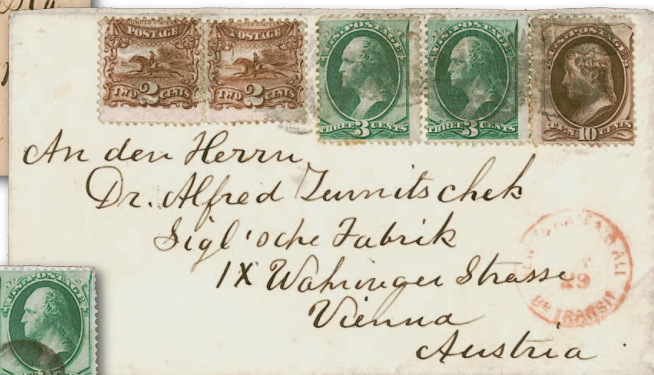 POSTAGE
TWO 2 CENTS
POSTAGE
TWO 2 CENTS
U.S. POSTAGE
THREE 3 CENTS
U.S. POSTAGE
THREE 3 CENTS
U.S. POSTAGE
TEN 10 CENTS
An den Herrn
Dr. Alfred Zurnitschek
Sigl'sche Fabrik
IX Wahringer Strasse
Vienna
Austria
PAID ALL
29
BR TRANSIT
U.S. POSTAGE